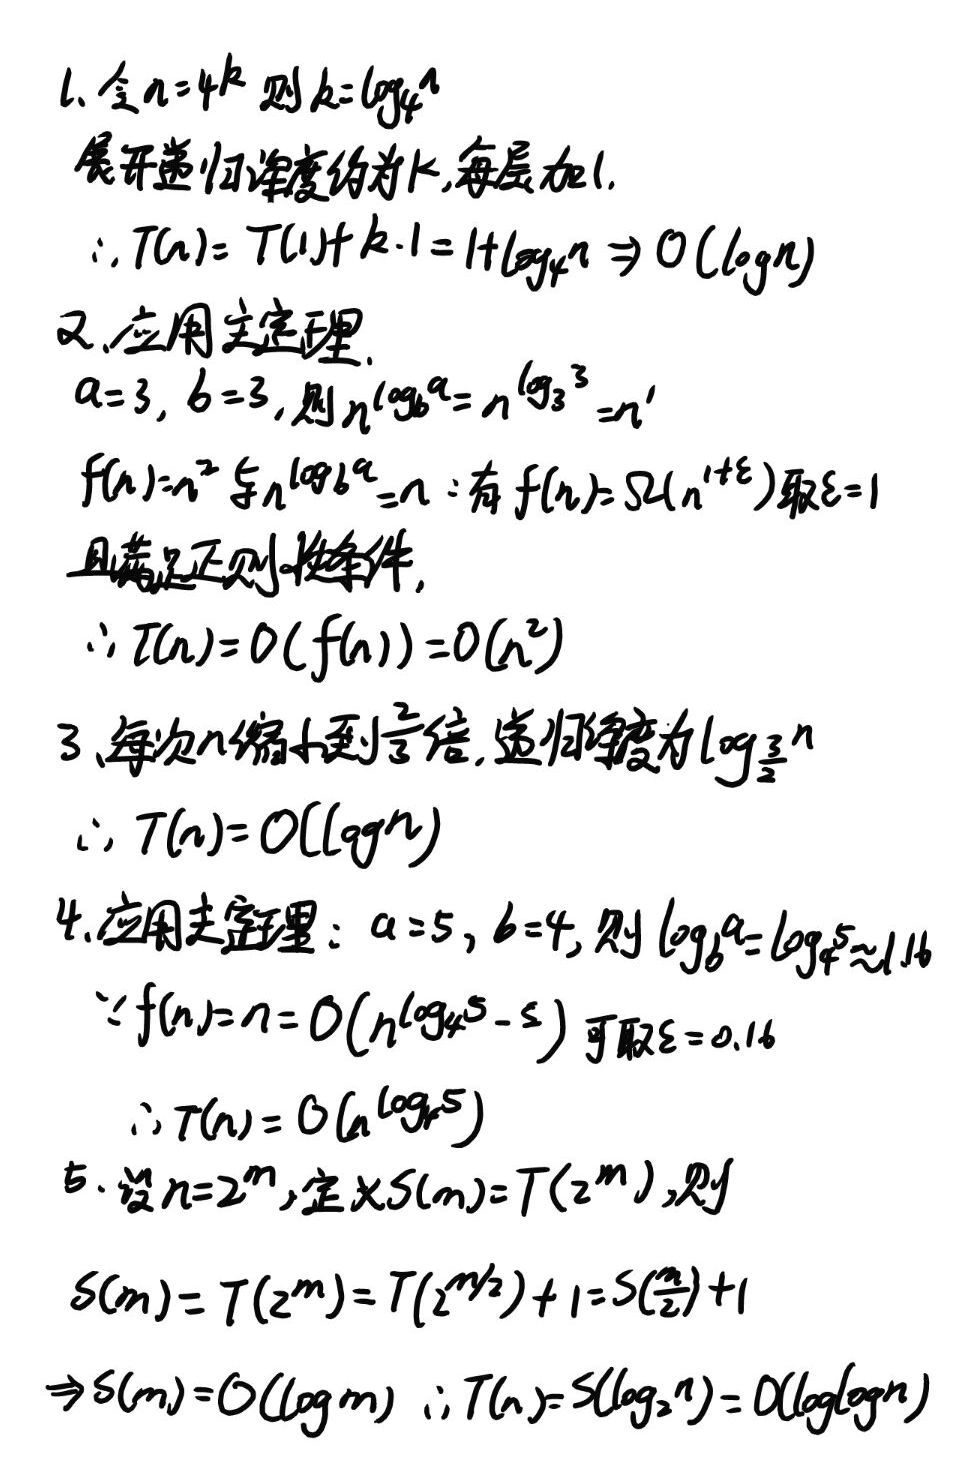 1. 令n=4^k 则 k=log₄n
展开递归深度约为k,每层加1.
∴T(n)=T(1)+k·1=1+log₄n⇒O(logn)
2.应用主定理.
a=3, b=3,则n^(log_b a)=n^(log₃3)=n¹
f(n)=n²与n^(log_b a)=n ∵有f(n)=Ω(n^(1+ε))取ε=1
且满足正则性条件,
∴T(n)=O(f(n))=O(n²)
3.每次n缩小到2/3倍.递归深度为log_(3/2) n
∴T(n)=O(logn)
4.应用主定理: a=5, b=4,则log_b a=log₄5≈1.16
∵f(n)=n=O(n^(log₄5-ε)) 可取ε=0.16
∴T(n)=O(n^(log₄5))
5.设n=2^m,定义S(m)=T(2^m),则
S(m)=T(2^m)=T(2^(m/2))+1=S(m/2)+1
⇒S(m)=O(logm) ∴T(n)=S(log₂n)=O(loglogn)